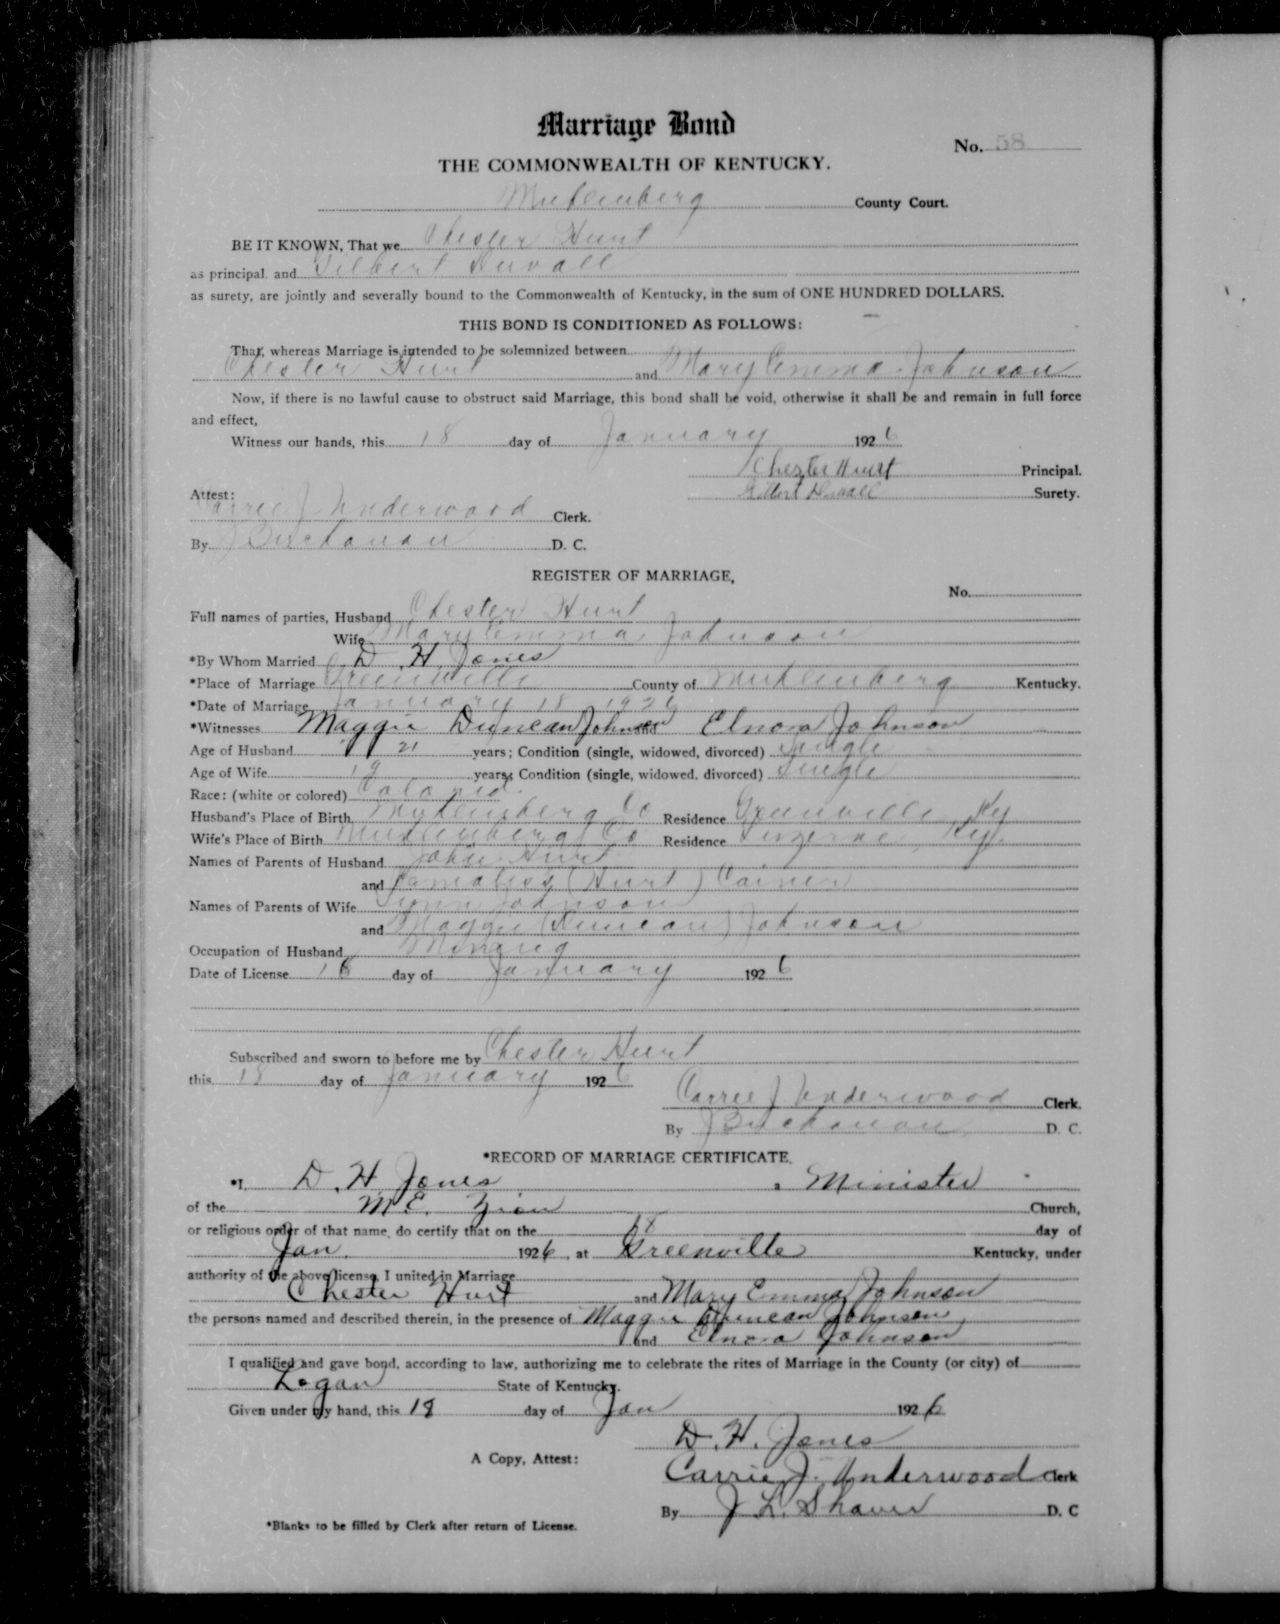 Marriage Bond
No. 58
THE COMMONWEALTH OF KENTUCKY.
Muhlenberg County Court.
BE IT KNOWN, That we Chester Hurt
as principal, and Gilbert Duvall
as surety, are jointly and severally bound to the Commonwealth of Kentucky, in the sum of ONE HUNDRED DOLLARS.
THIS BOND IS CONDITIONED AS FOLLOWS:
That, whereas Marriage is intended to be solemnized between
Chester Hurt and Mary Emma Johnson
Now, if there is no lawful cause to obstruct said Marriage, this bond shall be void, otherwise it shall be and remain in full force
and effect,
Witness our hands, this 18 day of January 1926
Chester Hurt Principal.
Gilbert Duvall Surety.
Attest:
Carrie J Underwood Clerk.
By J Buchanan D. C.
REGISTER OF MARRIAGE,
No.
Full names of parties, Husband Chester Hurt
Wife Mary Emma Johnson
*By Whom Married D. H. Jones
*Place of Marriage Greenville County of Muhlenberg Kentucky.
*Date of Marriage January 18 1926
*Witnesses Maggie Duncan Johnson Elnora Johnson
Age of Husband 21 years; Condition (single, widowed, divorced) Single
Age of Wife 19 years; Condition (single, widowed, divorced) Single
Race: (white or colored) Colored
Husband's Place of Birth Muhlenberg Co Residence Greenville Ky
Wife's Place of Birth Muhlenberg Co Residence Luzerne, Ky.
Names of Parents of Husband John Hurt
and (Hurt)
Names of Parents of Wife Johnson
and Maggie (Duncan) Johnson
Occupation of Husband Mining
Date of License 18 day of January 1926
Subscribed and sworn to before me by Chester Hurt
this 18 day of January 1926
Carrie J Underwood Clerk.
By J Buchanan D. C.
*RECORD OF MARRIAGE CERTIFICATE.
*I, D. H. Jones, Minister
of the M. E. Zion Church,
or religious order of that name, do certify that on the 18 day of
Jan. 1926, at Greenville Kentucky, under
authority of the above license, I united in Marriage
Chester Hurt and Mary Emma Johnson
the persons named and described therein, in the presence of Maggie Duncan Johnson,
and Elnora Johnson
I qualified and gave bond, according to law, authorizing me to celebrate the rites of Marriage in the County (or city) of
Logan State of Kentucky.
Given under my hand, this 18 day of Jan 1926
D. H. Jones
A Copy, Attest:
Carrie J. Underwood Clerk
By J L. Shaver D. C
*Blanks to be filled by Clerk after return of License.